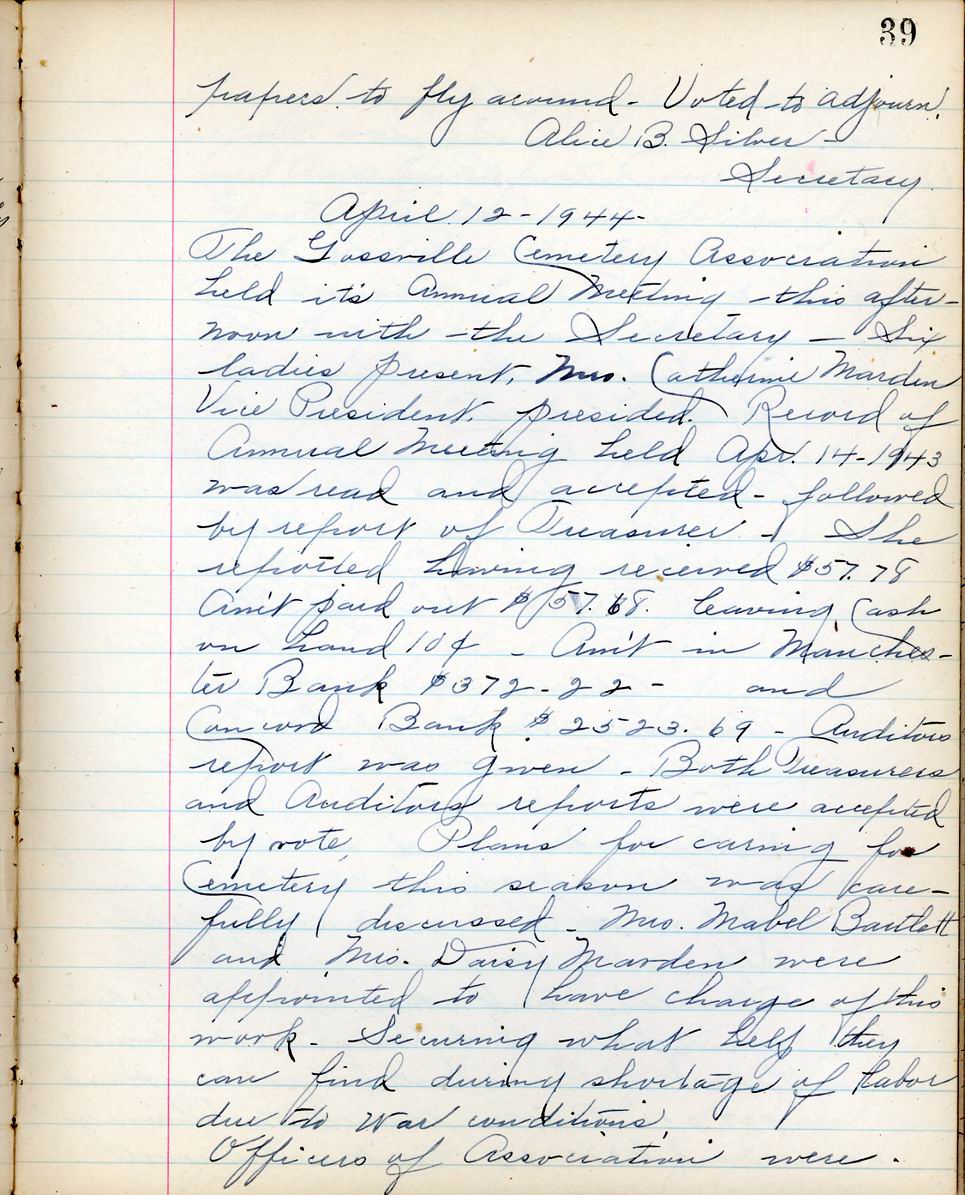 39
papers to fly around - Voted to adjourn.
Alice B. Silver -
Secretary.
April 12 - 1944 -
The Gossville Cemetery Association
held it's Annual Meeting this after-
noon with the Secretary - Six
ladies present. Mrs. Catherine Marden
Vice President. presided. Record of
Annual Meeting held Apr. 14-1943
was read and accepted - followed
by report of Treasurer - She
reported having received $57.78
Am't paid out $57.68. leaving Cash
on hand 10¢ - Am't in Manches-
ter Bank $372-22 - and
Concord Bank $2523.69 - Auditors
report was given - Both Treasurers
and Auditors reports were accepted
by vote. Plans for caring for
Cemetery this season was care-
fully discussed - Mrs. Mabel Bartlett
and Mrs. Daisy Marden were
appointed to have charge of this
work - Securing what help they
can find during shortage of labor
due to War conditions.
Officers of Association were.